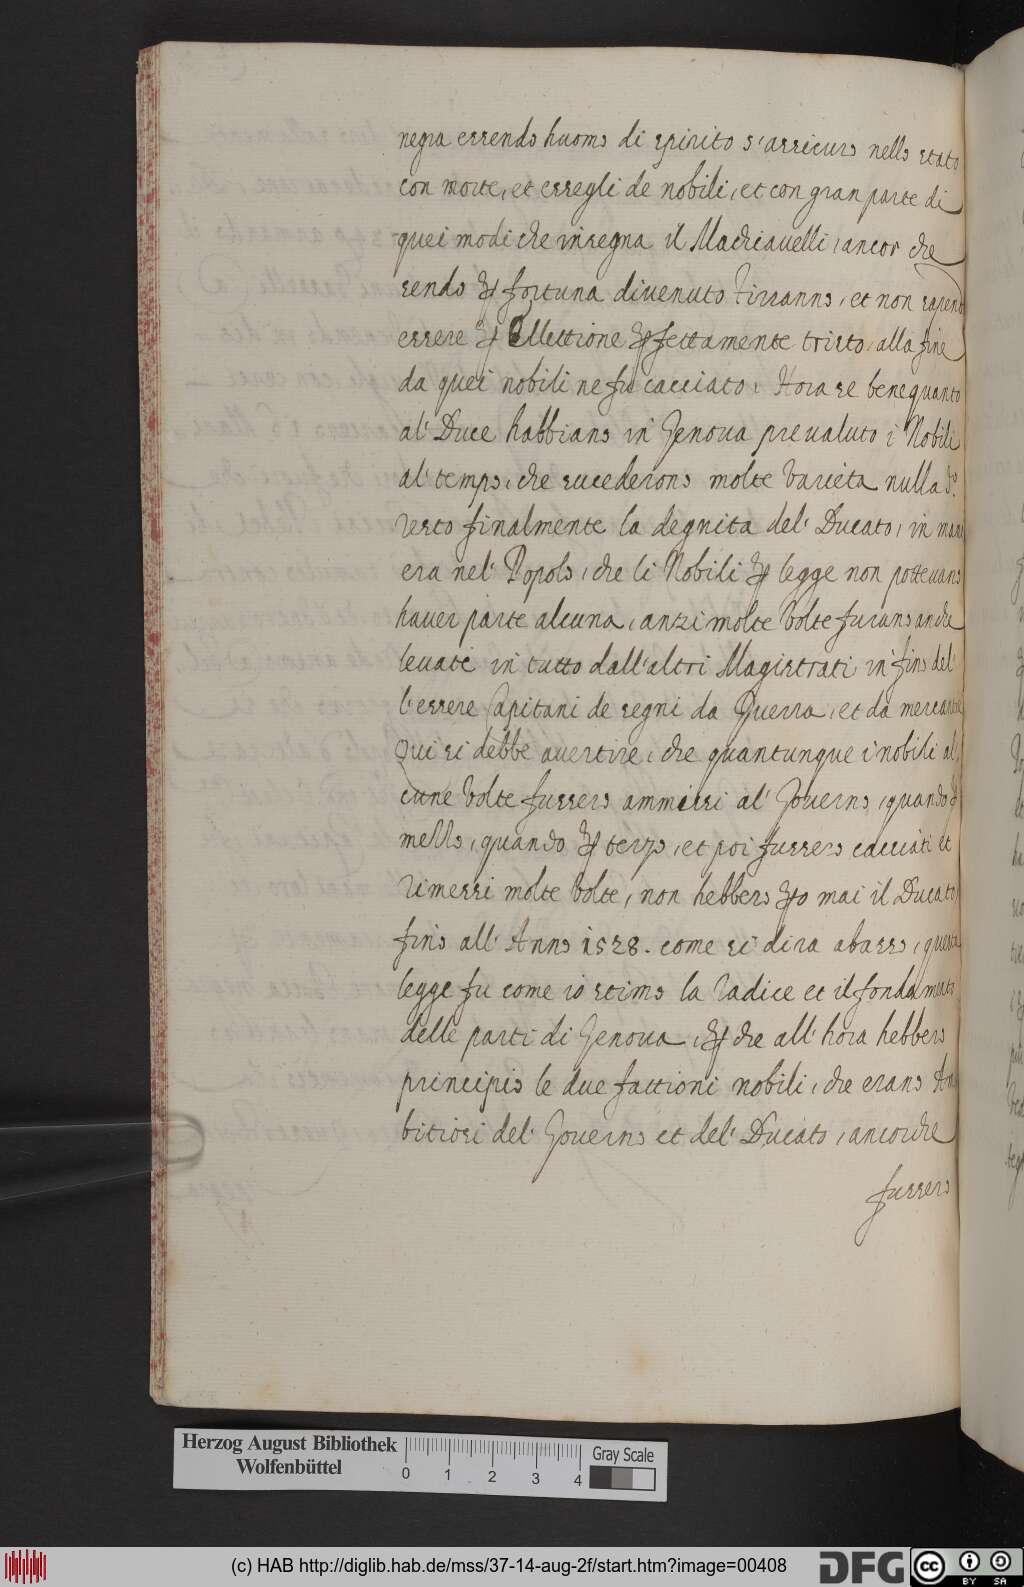 negra essendo huomo di spirito s'assicuro nello stato
con morte, et essegli de nobili, et con gran parte di
quei modi che insegna il Machiavelli, ancor che
sendo per fortuna divenuto Tiranno, et non sapendo
essere per Ellettione perfettamente tristo, alla fine
da quei nobili ne fu cacciato, Hora se bene quanto
al' Duce habbiano in Genova prevaluto i Nobili
al' tempo, che sucederono molte varietà nulla
Resto finalmente la degnita del' Ducato, in mani
era nel' Popolo, che li Nobili per legge non pottevano
haver parte alcuna, anzi molte volte furuno anche
levati in tutto dall'altri Magistrati in fino del'
l'essere Capitani de regni da Guerra, et da mercantie
Qui si debbe avertire, che quantunque i nobili al,
cune volte fussero ammessi al' Governo, quando per
mezzo, quando per terzo, et poi fussero cacciati et
Rimessi molte volte, non hebbero però mai il Ducato
fino all' Anno 1528. come si dira abasso, questa
legge fu come io stimo la radice et il fondamento
delle parti di Genova, per che all' hora hebbero
principio le due fattioni nobili, che erano Am
bitiosi del' Governo et del' Ducato, ancorche
fussero
Herzog August Bibliothek
Wolfenbüttel
0 1 2 3 4
Gray Scale
(c) HAB http://diglib.hab.de/mss/37-14-aug-2f/start.htm?image=00408
DFG
cc BY SA